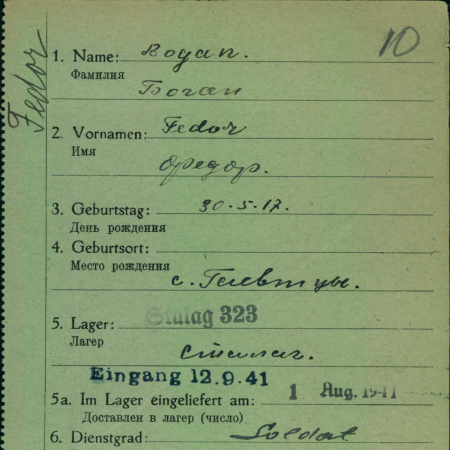 10
Fedor
1. Name: Bogan.
Фамилия
Боган
2. Vornamen: Fedor
Имя
Федор.
3. Geburtstag: 30.5.17.
День рождения
4. Geburtsort:
Место рождения
с. Гилевтцы.
5. Lager: Stalag 323
Лагер
Сталаг.
Eingang 12.9.41
5a. Im Lager eingeliefert am: 1 Aug. 1941
Доставлен в лагер (число)
6. Dienstgrad: Soldat